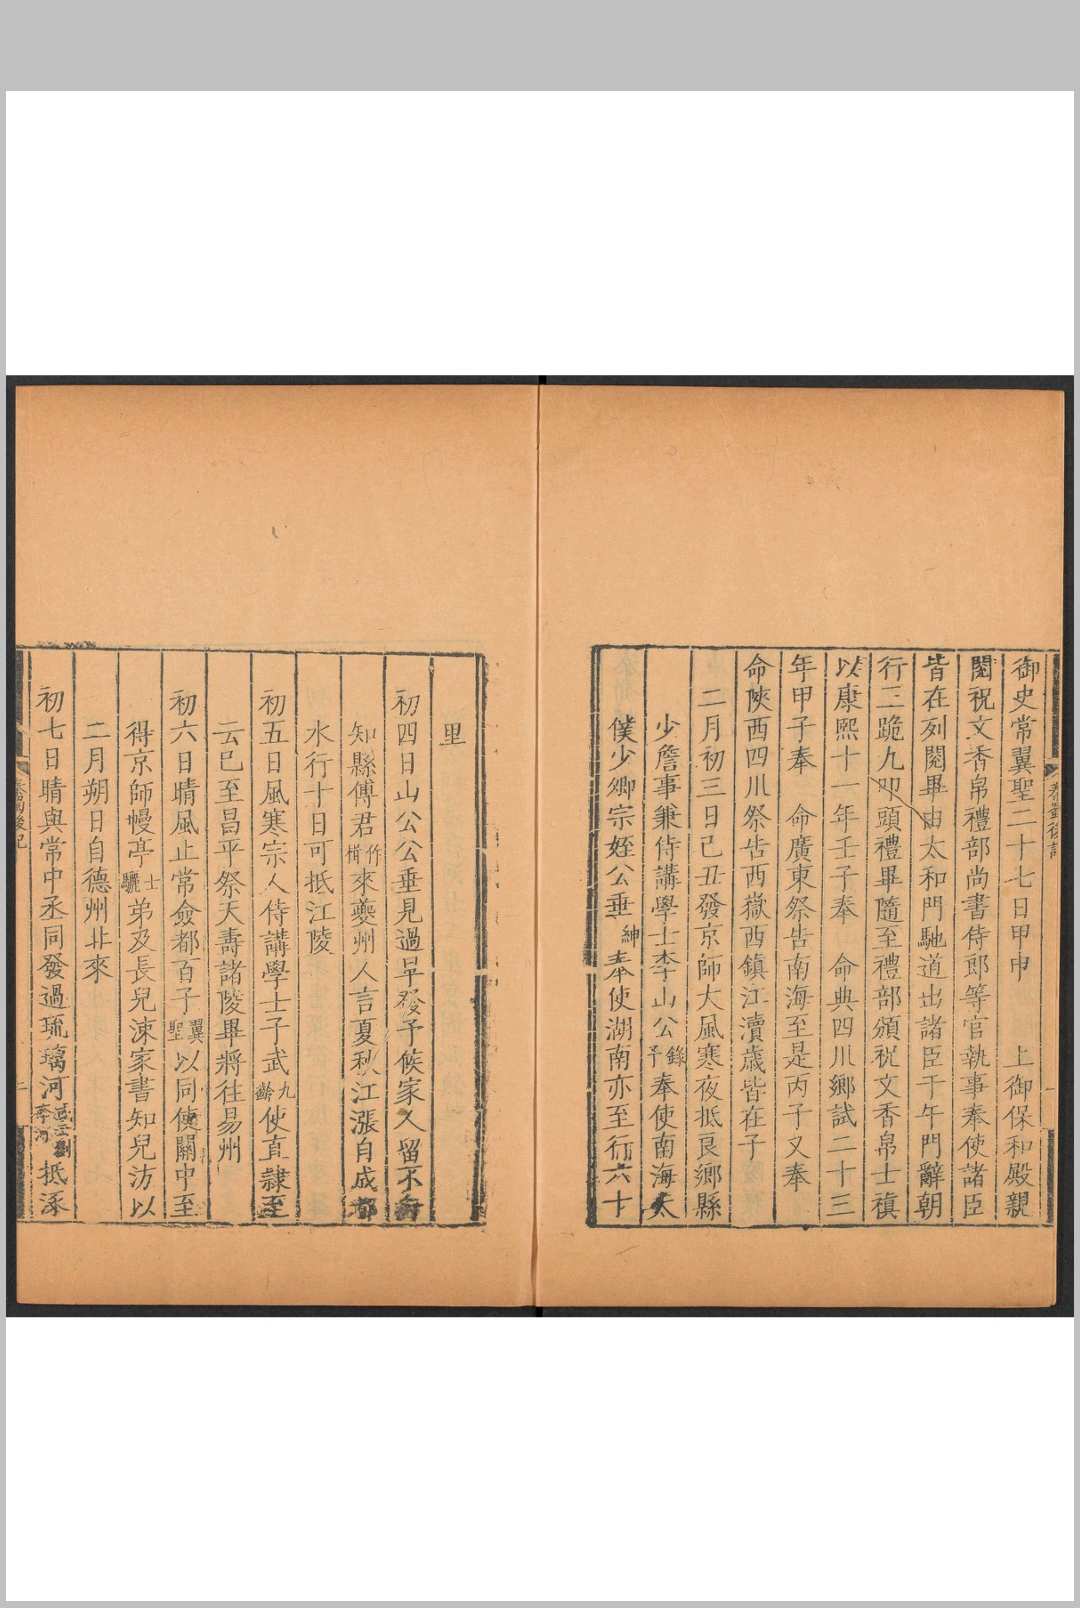 御史常翼聖二十七日甲申　上御保和殿親
閱祝文香帛禮部尚書侍郎等官執事奉使諸臣
皆在列閱畢由太和門馳道出諸臣于午門辭朝
行三跪九叩頭禮畢隨至禮部頒祝文香帛士禛
以康熙十一年壬子奉　命典四川鄉試二十三
年甲子奉　命廣東祭告南海至是丙子又奉
命陝西四川祭告西嶽西鎮江瀆歲皆在子
二月初三日己丑發京師大風寒夜抵良鄉縣
少詹事兼侍講學士李山公錄予奉使南海太
僕少卿宗姪公垂紳奉使湖南亦至行六十
里
初四日山公公垂見過早發予候家人留不
知縣傅君作楫來夔州人言夏秋江漲自成都
水行十日可抵江陵
初五日風寒宗人侍講學士子武九齡使直隸至
云已至昌平祭天壽諸陵畢將往易州
初六日晴風止常僉都百子翼聖以同使關中至
得京師幔亭士驪弟及長兒涑家書知兒汸以
二月朔日自德州北來
初七日晴與常中丞同發過琉璃河抵涿